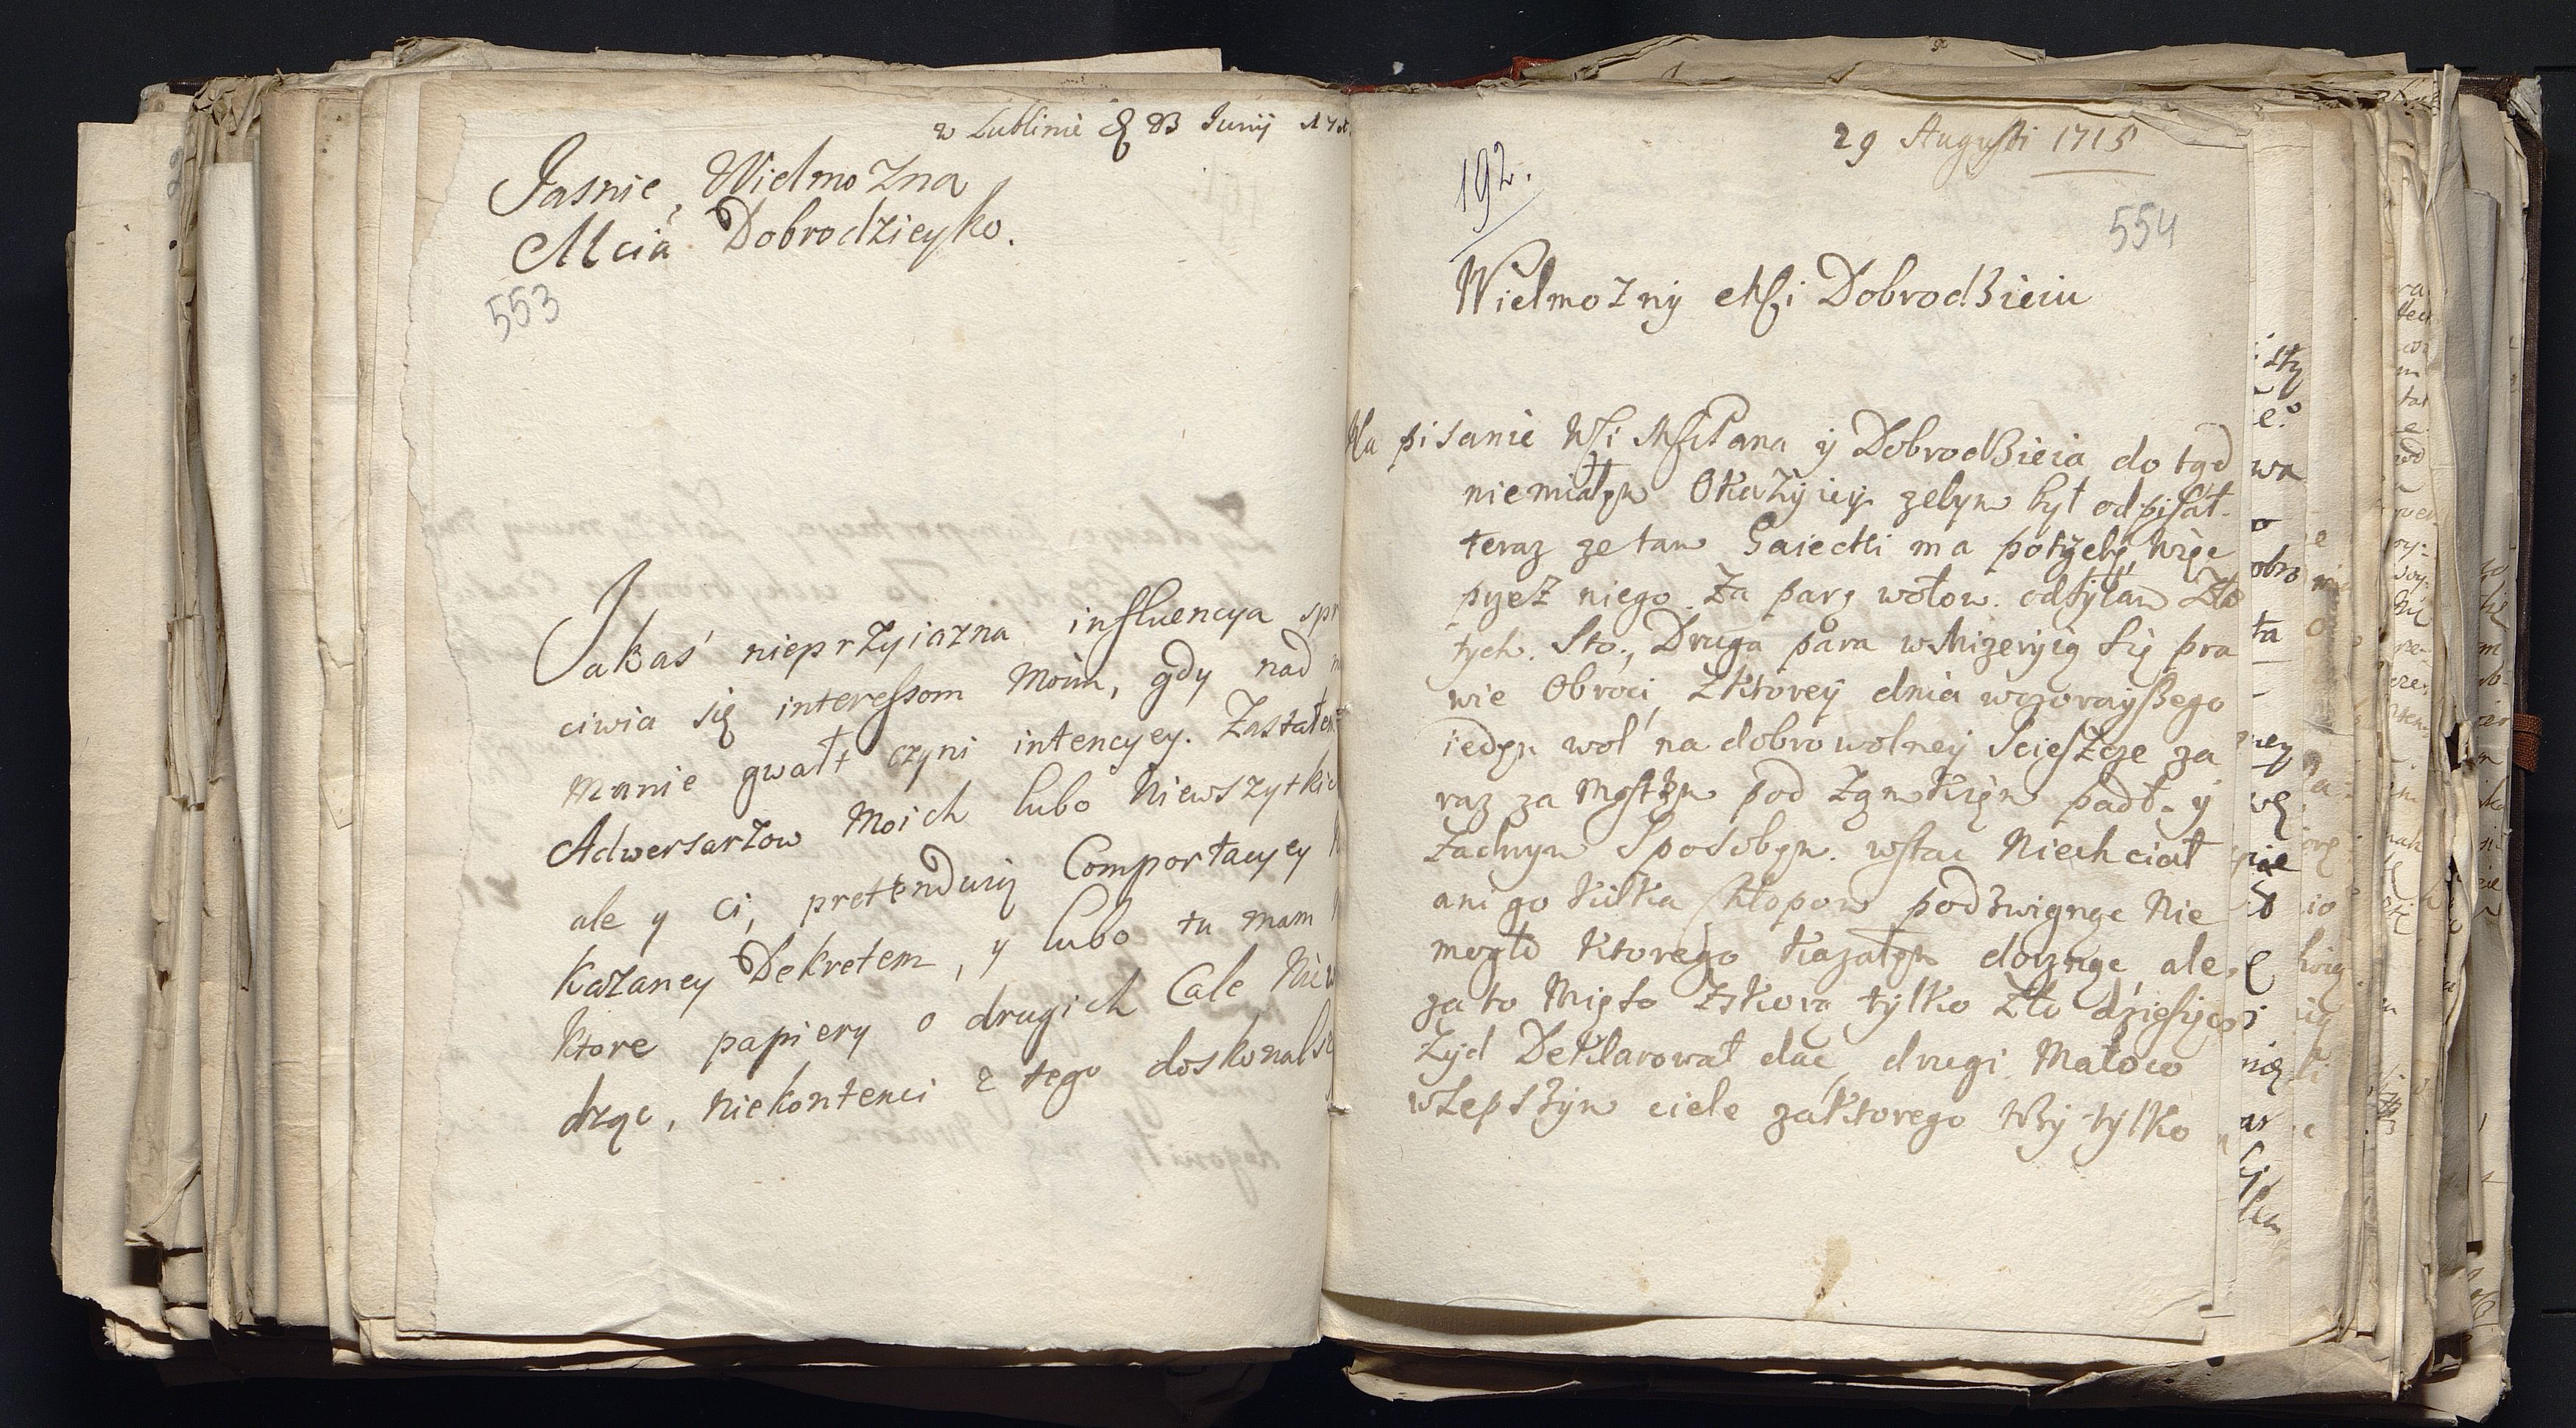 w Lublinie 23 Junij
Jasnie Wielmozna
Mcia Dobrodzieyko.
553
Jakaś nieprzyiazna influencya spr
ciwia się interessom Moim, gdy nad
manie gwałt czyni intencyey. Zastałem
Adwersarzow Moich lubo Niewszytkich
ale y ci, pretenduią Comportacyey
kazaney Dekretem, y lubo tu mam
ktore papiery o drugich Cale Niew
dząc, Niekontenci z tego doskonals
29 Augusti 1715
192.
554
Wielmozny Dobrodzieiu
Na pisanie Dobrodzieia do tąd
niemiałem Okazyiey zebym był odpisał.
teraz ze tam Gaiecki ma potrzebę, Więc
przez niego Za parę wołow. odsyłam Zło
tych. Sto., Druga para w Mizeryią się pra
wie Obroci, Z Ktorey dnia wczorayszego
ieden woł na dobrowolney SciesZce za
raz za Mostkem pod Zamkiem padł. y
Zadnym Sposobem. wstac Niechciał
ani go kilka Chłopow podzwignąc Nie
mogło Ktorego kazałem dorznąc ale
za to Mięso Zskorą tylko Zło dziesięc
Zyd Deklarował dac drugi Mało co
wLepszym ciele zaktorego tylko